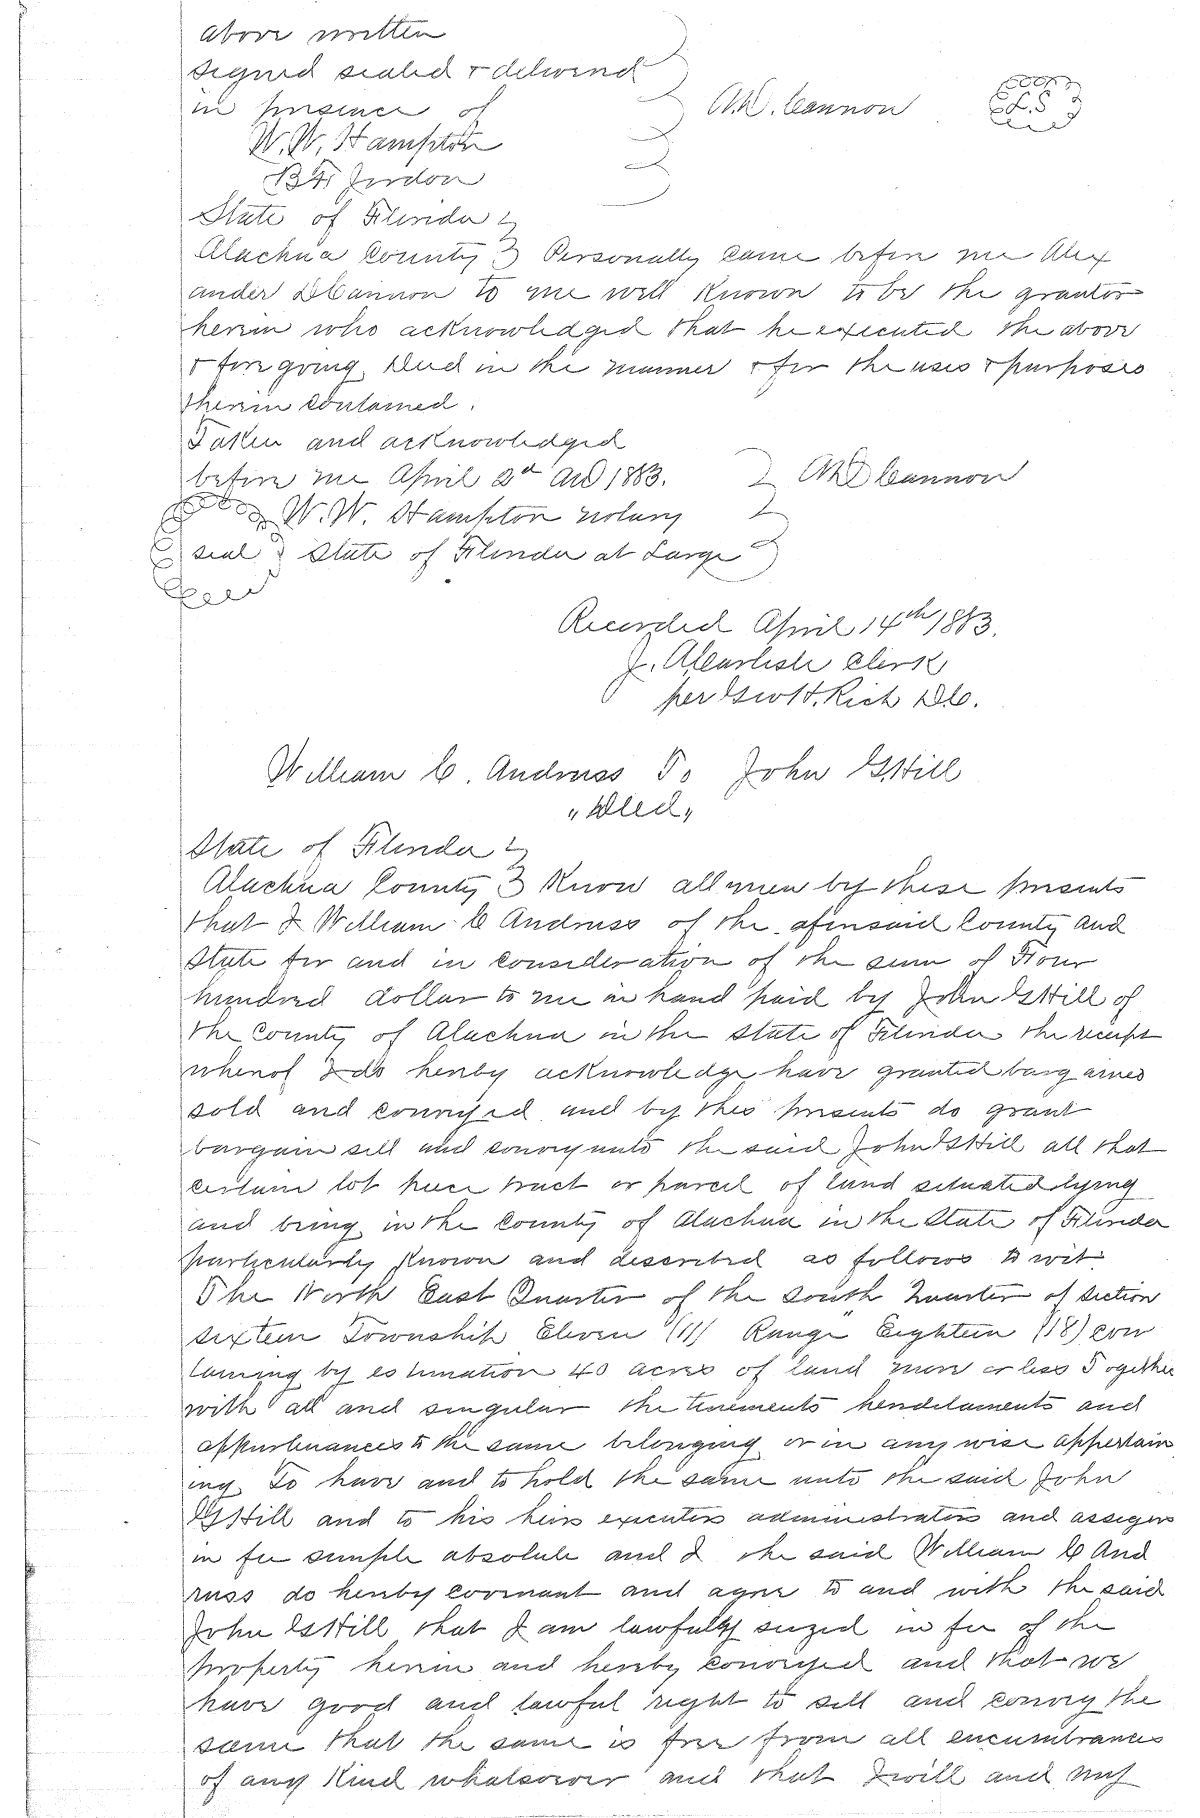 above written
Signed sealed & delivered
in presence of A.D. Cannon L.S
W.W. Hampton
B F Jordon
State of Florida
Alachua County Personally came before me Alex
ander D Cannon to me well known to be the grantor
herein who acknowledged that he executed the above
& foregoing Deed in the manner & for the uses & purposes
therein contained.
Taken and acknowledged
before me April 2d AD 1883. A D Cannon
W.W. Hampton notary
seal State of Florida at Large
Recorded April 14th 1883.
J. A Carlisle Clerk
per Geo H. Rich D.C.
William C. Andruss To John G Hill
"Deed"
State of Florida
Alachua County Know all men by these presents
that I William C Andruss of the aforesaid County and
State for and in consideration of the sum of Four
hundred dollar to me in hand paid by John G Hill of
the County of Alachua in the State of Florida the receipt
whereof I do hereby acknowledge have granted bargained
sold and conveyed and by thes presents do grant
bargain sell and convey unto the said John G Hill all that
certain lot piece tract or parcel of land situated lying
and being in the County of Alachua in the State of Florida
particularly known and described as follows to wit
The North East Quarter of the South Quarter of section
sixteen Township Eleven (11) Range Eighteen (18) con
taining by estimation 40 acres of land more or less Together
with all and singular the tenements hereditaments and
appurtenances to the same belonging or in any wise appertain
ing To have and to hold the same unto the said John
G Hill and to his heirs executors administrators and assigns
in fee simple absolute and I the said William C And
russ do hereby covenant and agree to and with the said
John G Hill that I am lawfully seized in fee of the
property herein and hereby conveyed and that we
have good and lawful right to sell and convey the
same that the same is free from all encumbrances
of any kind whatsoever and that I will and my